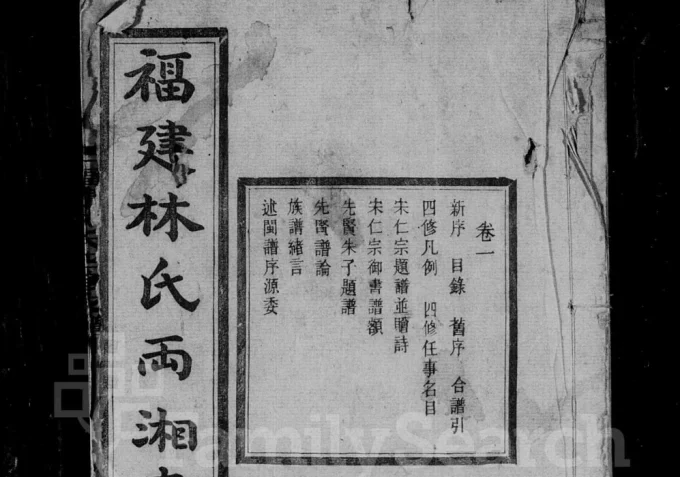 福建林氏両湘
卷一
新序 目錄 舊序 合譜引
四修凡例 四修任事名目
宋仁宗題譜並贈詩
宋仁宗御書譜額
先賢朱子題譜
先賢譜論
族譜緒言
述閩譜序源委
FamilySearch